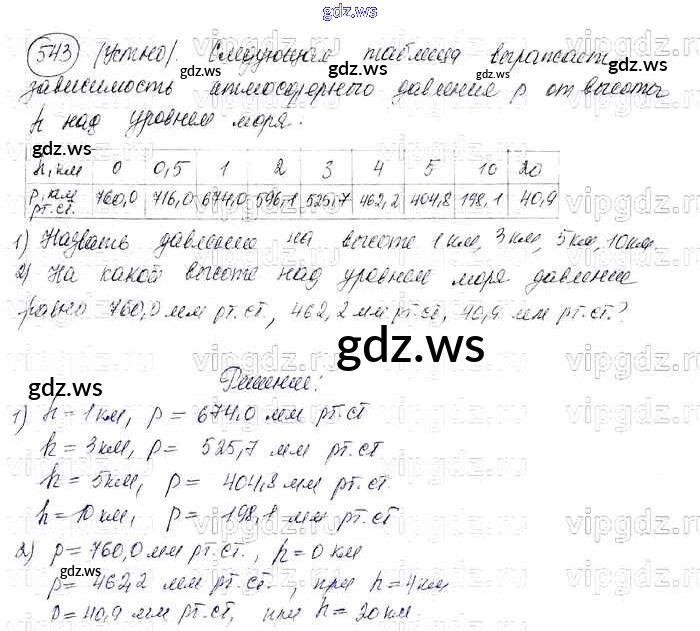 gdz.ws
543 (Устно). Следующая таблица выражает
зависимость атмосферного давления p от высоты
h над уровнем моря:
h, км 0 0,5 1 2 3 4 5 10 20
p, км рт.ст. 760,0 716,0 674,0 596,1 525,7 462,2 404,8 198,1 40,9
1) Назвать давление на высоте 1 км, 3 км, 5 км, 10 км.
2) На какой высоте над уровнем моря давление
равно 760,0 мм рт.ст., 462,2 мм рт.ст, 40,9 мм рт.ст.?
gdz.ws
Решение:
1) h = 1 км, p = 674,0 мм рт.ст
h = 3 км, p = 525,7 мм рт.ст
h = 5 км, p = 404,8 мм рт.ст.
h = 10 км, p = 198,1 мм рт.ст
2) p = 760,0 мм рт.ст., h = 0 км
p = 462,2 мм рт.ст., при h = 4 км
p = 40,9 мм рт.ст, при h = 20 км.